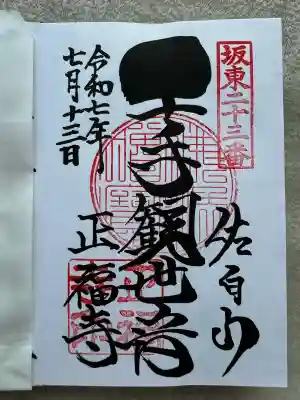 坂東二十三番
佐白山
千手観世音
令和七年
七月十三日
正福寺